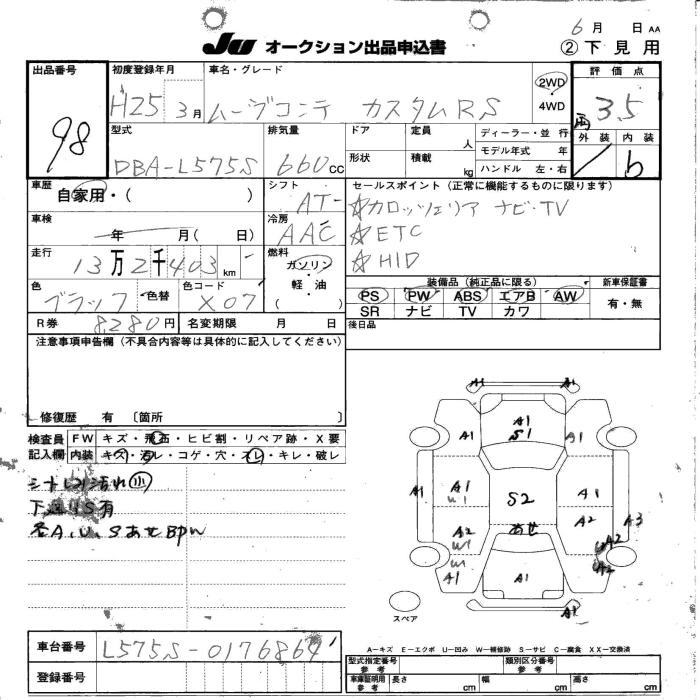 6 月 日 AA
JU オークション出品申込書 ② 下見用
出品番号 初度登録年月 車名・グレード 評価点
98 H25 3月 ムーヴコンテ カスタムRS 2WD・4WD 3.5
型式 排気量 ドア 定員 人 ディーラー・並行 外装 内装
DBA-L575S 660cc 形状 積載 kg モデル年式 年 b
ハンドル 左・右
車歴 シフト セールスポイント(正常に機能するものに限ります)
自家用・( ) AT ☆カロッツェリア ナビ・TV
車検 冷房 ☆ETC
年 月( 日) AAC ☆HID
走行 燃料
13万2千403km ガソリン・軽油( ) 装備品(純正品に限る) 新車保証書
色 色替 色コード PS PW ABS エアB AW 有・無
ブラック X07 SR ナビ TV カワ
R券 8,280円 名変期限 月 日 後日品
注意事項申告欄(不具合内容等は具体的に記入してください)
修復歴 有 〔箇所 〕
検査員 FW キズ・飛石・ヒビ割・リペア跡・X要
記入欄 内装 キズ・汚レ・コゲ・穴・スレ・キレ・破レ
シートレス汚れ小
下廻りS有
各A、U、SあせBPW
A1 A1
A1 A1 A1
S1
A1 A1 S2 A1
U1
A2 あせ A2 A3
W1 A2
W1 A2
A1 A1
A1
スペア
車台番号 L575S-0176864
登録番号
A-キズ E-エクボ U-凹み W-補修跡 S-サビ C-腐食 XX-交換済
型式指定番号 参考 類別区分番号 参考
車庫証明用 参考 長さ cm 幅 cm 高さ cm